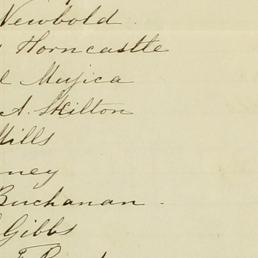 Newbold.
Horncastle
Mujica
A. Skilton
Mills
ney
Buchanan.
Gibbs